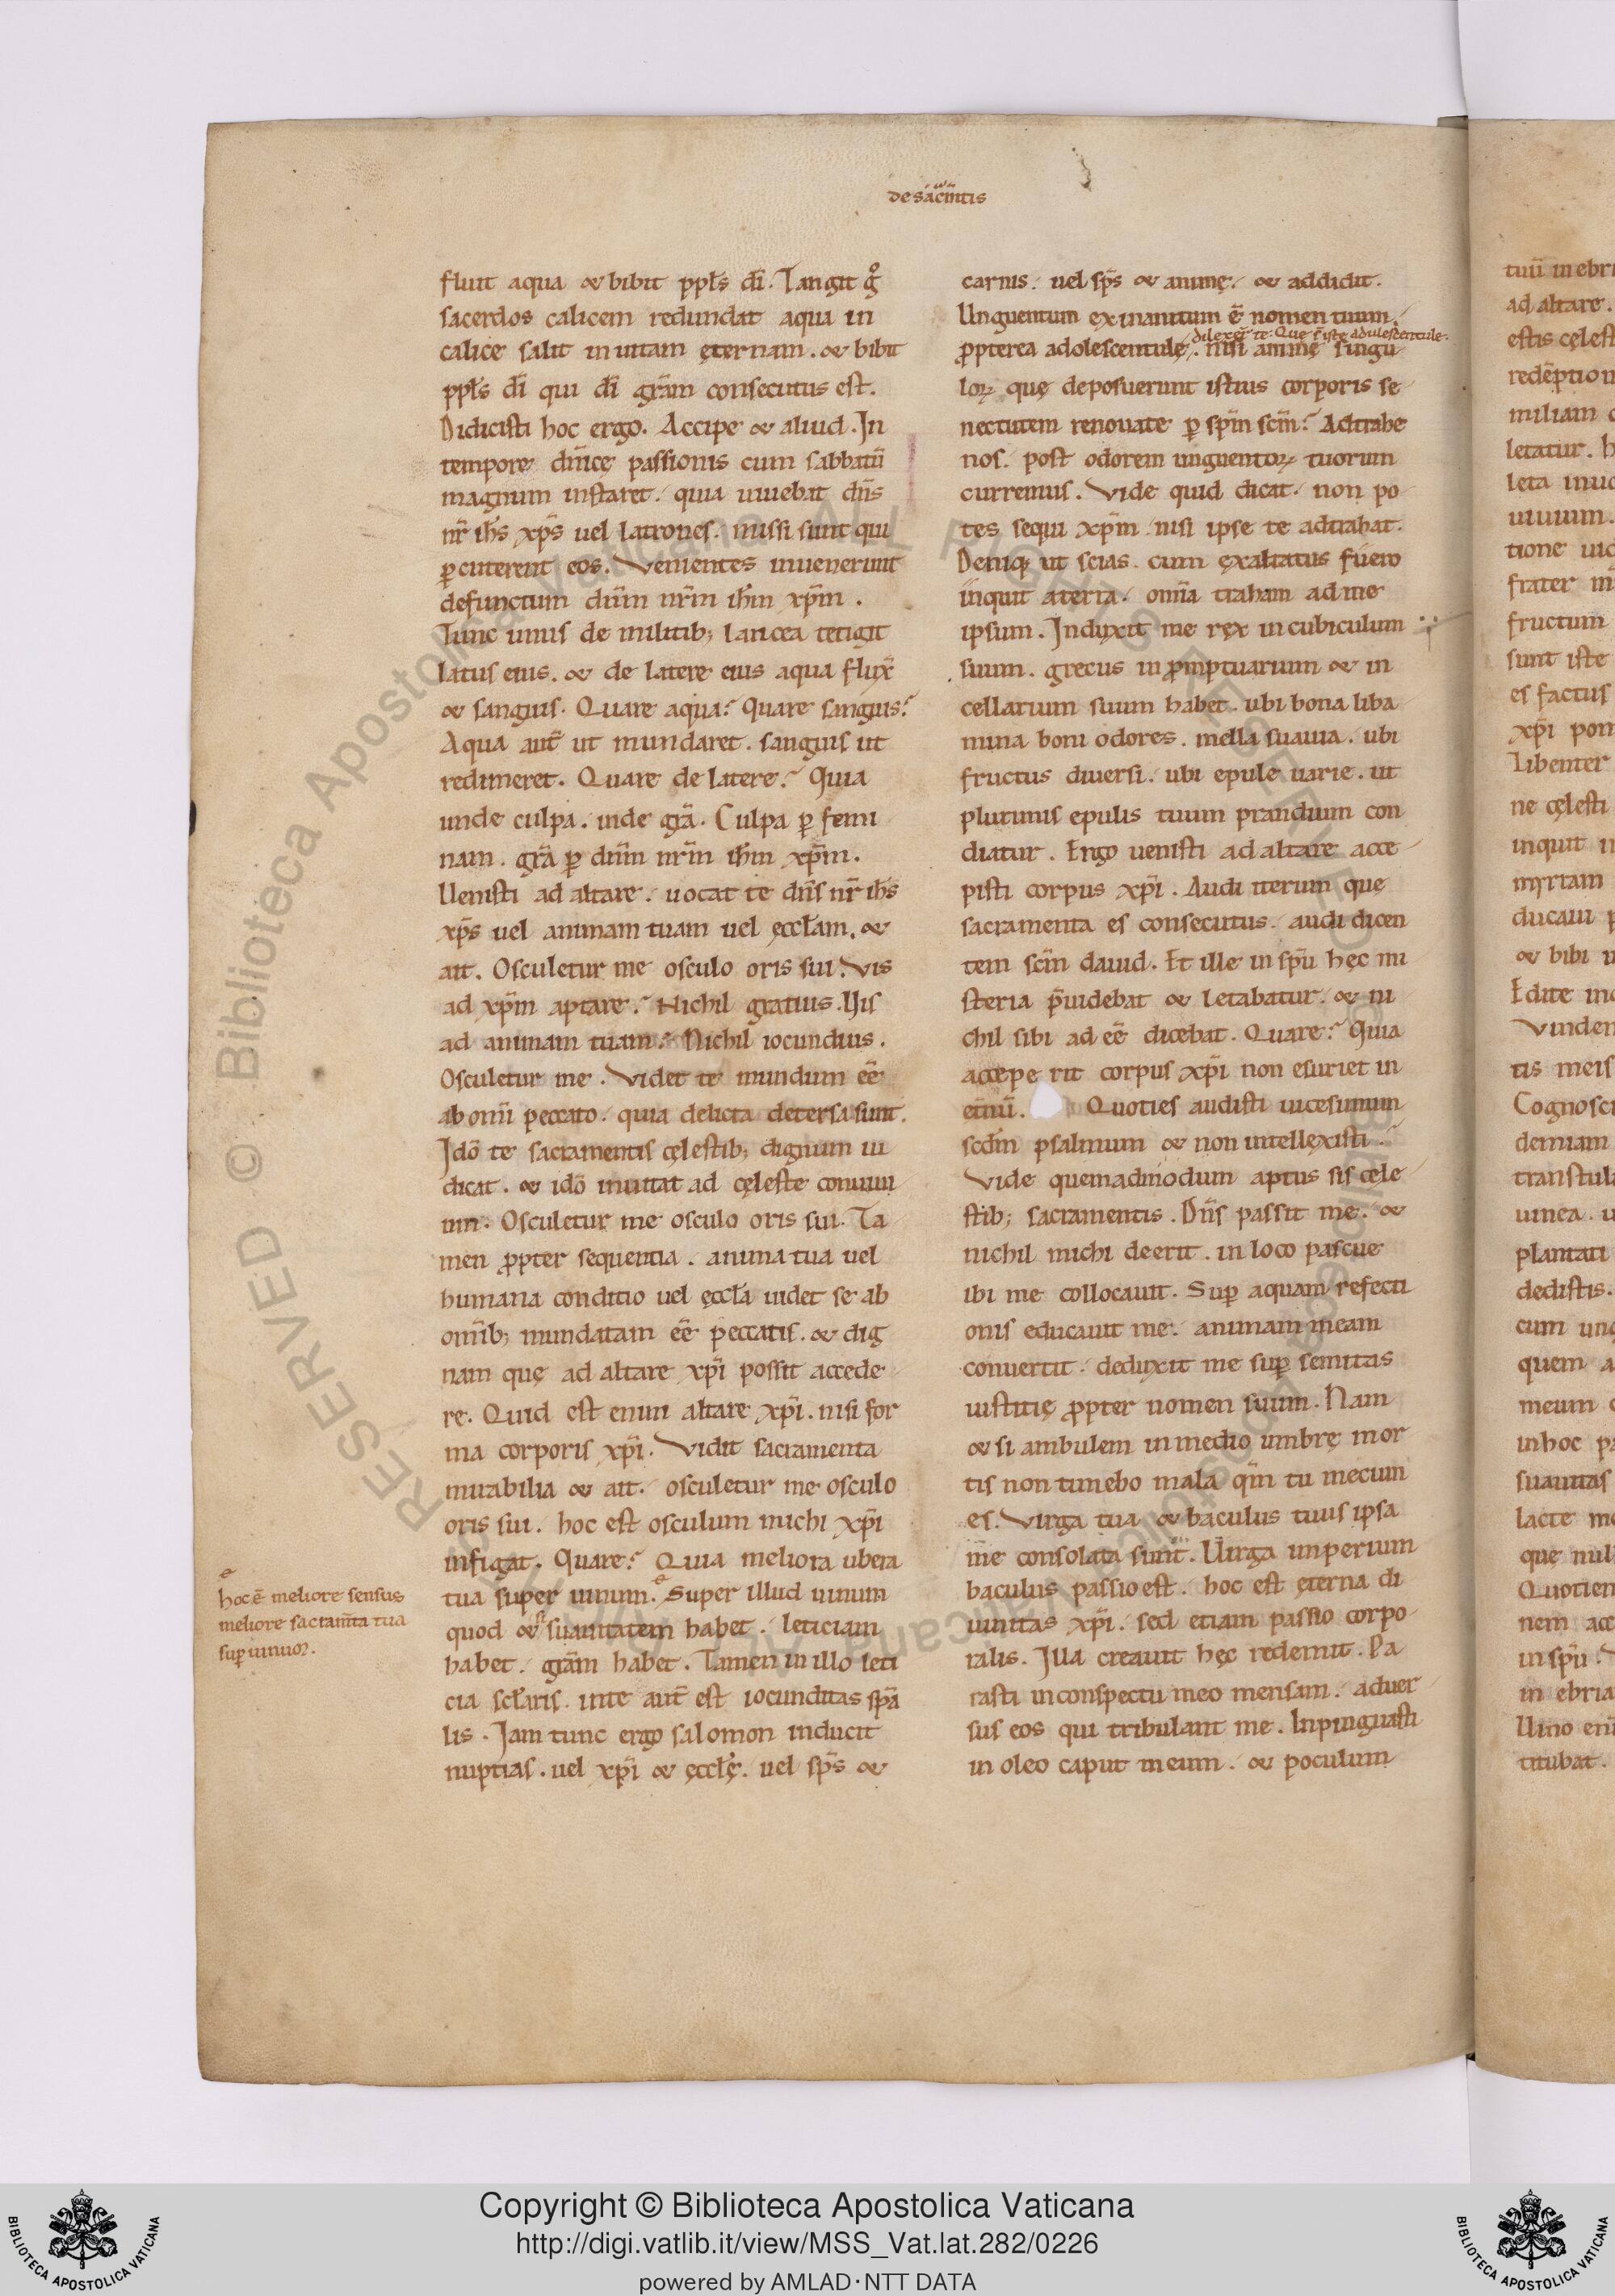 de sac̄m̄tis
fluit aqua & bibit ppl̄s dī. Tangit g̊
sacerdos calicem redundat aqua in
calice salit in uitam ęternam. & bibit
ppl̄s dī qui dī grām consecutus est.
Didicisti hoc ergo. Accipe & aliud. In
tempore dn̄icę passionis cum sabbatū
magnum instaret. quia uiuebat dn̄s
nr̄ ih̄s xp̄s uel latrones. missi sunt qui
ꝑcuterent eos. Venientes inuenerunt
defunctum dn̄m nr̄m ih̄m xp̄m.
Tunc unus de militib; lancea tetigit
latus eius. & de latere eius aqua flux̄
& sanguis. Quare aqua? Quare sanguis?
Aqua aut̄ ut mundaret. sanguis ut
redimeret. Quare de latere? Quia
unde culpa. inde grā. Culpa ꝑ femi
nam. grā ꝑ dn̄m nr̄m ih̄m xp̄m.
Uenisti ad altare. uocat te dn̄s nr̄ ih̄s
xp̄s uel animam tuam uel ęccl̄am. &
ait. Osculetur me osculo oris sui. Vis
ad xp̄m aptare? Nichil gratius. Uis
ad animam tuam? Nichil iocundius.
Osculetur me. Videt te mundum eē
ab omī peccato. quia delicta detersa sunt.
Idō te sacramentis cęlestib; dignum iu
dicat. & idō inuitat ad cęleste conuiui
um. Osculetur me osculo oris sui. Ta
men ꝓpter sequentia. anima tua uel
humana conditio uel ęccl̄a uidet se ab
omīb; mundatam eē peccatis. & dig
nam quę ad altare xp̄i possit accede
re. Quid est enim altare xp̄i. nisi for
ma corporis xp̄i. Vidit sacramenta
mirabilia & ait. osculetur me osculo
oris sui. hoc est osculum michi xp̄i
infigat. Quare? Quia meliora ubera
tua super uinum. Super illud uinum
quod & suauitatem habet. leticiam
habet. grām habet. Tamen in illo leti
cia scl̄aris. inte aut̄ est iocunditas sp̄a
lis. Iam tunc ergo salomon inducit
nuptias. uel xp̄i & ęccl̄ę. uel sp̄s &
hoc ē meliore sensus
meliore sacram̄ta tua
suꝑ uinuꝫ.
carnis. uel sp̄s & animę. & addidit.
Unguentum exinanitum ē nomen tuum.
dilexer̄ te. Que s̄ iste adulescentule.
ꝓpterea adolescentulę. nisi animę singu
loꝝ quę deposuerunt istius corporis se
nectutem renouate ꝑ sp̄m scm̄? Adtrahe
nos. post odorem unguentoꝝ tuorum
curremus. Vide quid dicat. non po
tes sequi xp̄m nisi ipse te adtrahat.
Deniq; ut scias. cum exaltatus fuero
inquit a terra. omīa traham ad me
ipsum. Induxit me rex in cubiculum
suum. grecus in ꝓmptuarium & in
cellarium suum habet. ubi bona liba
mina boni odores. mella suauia. ubi
fructus diuersi. ubi epule uarie. ut
plurimis epulis tuum prandium con
diatur. Ergo uenisti ad altare acce
pisti corpus xp̄i. Audi iterum que
sacramenta es consecutus. audi dicen
tem scm̄ dauid. Et ille in sp̄u hęc mi
steria p̄uidebat & letabatur. & ni
chil sibi ad eē dicebat. Quare? Quia
accepe rit corpus xp̄i non esuriet in
et̄nū. Quoties audisti uicesimum
scdm̄ psalmum & non intellexisti.
Vide quemadmodum aptus sis cęle
stib; sacramentis. Dn̄s passit me. &
nichil michi deerit. in loco pascue
ibi me collocauit. Suꝑ aquam refecti
onis educauit me. animam meam
conuertit. deduxit me suꝑ semitas
iustitię ꝓpter nomen suum. Nam
& si ambulem in medio umbrę mor
tis non timebo mala qm̄ tu mecum
es. Virga tua & baculus tuus ipsa
me consolata sunt. Uirga imperium
baculus passio est. hoc est ęterna di
uinitas xp̄i. sed etiam passio corpo
ralis. Illa creauit hęc redemit. Pa
rasti in conspectu meo mensam. aduer
sus eos qui tribulant me. Inpinguasti
in oleo caput meum. & poculum
tuū inebri
ad altare.
estis cęlest
redēption
miliam
letatur. h
leta inuo
uiuum.
tione uid
frater m̄
fructum
sunt iste
es factus
xp̄i pon
Libenter
ne cęlesti
inquit in
myrram
ducaui p
& bibi u
Edite
tis meis
Cognosci
demiam
transtul
uinea. u
plantati
dedistis.
cum
quem a
meum
in hoc pa
suauitas
lacte me
que nul
Quotien
nem acc
in sp̄u.
in ebria
Uino eni
titubat.
Copyright © Biblioteca Apostolica Vaticana
http://digi.vatlib.it/view/MSS_Vat.lat.282/0226
powered by AMLAD·NTT DATA
BIBLIOTECA APOSTOLICA VATICANA
BIBLIOTECA APOSTOLICA VATICANA